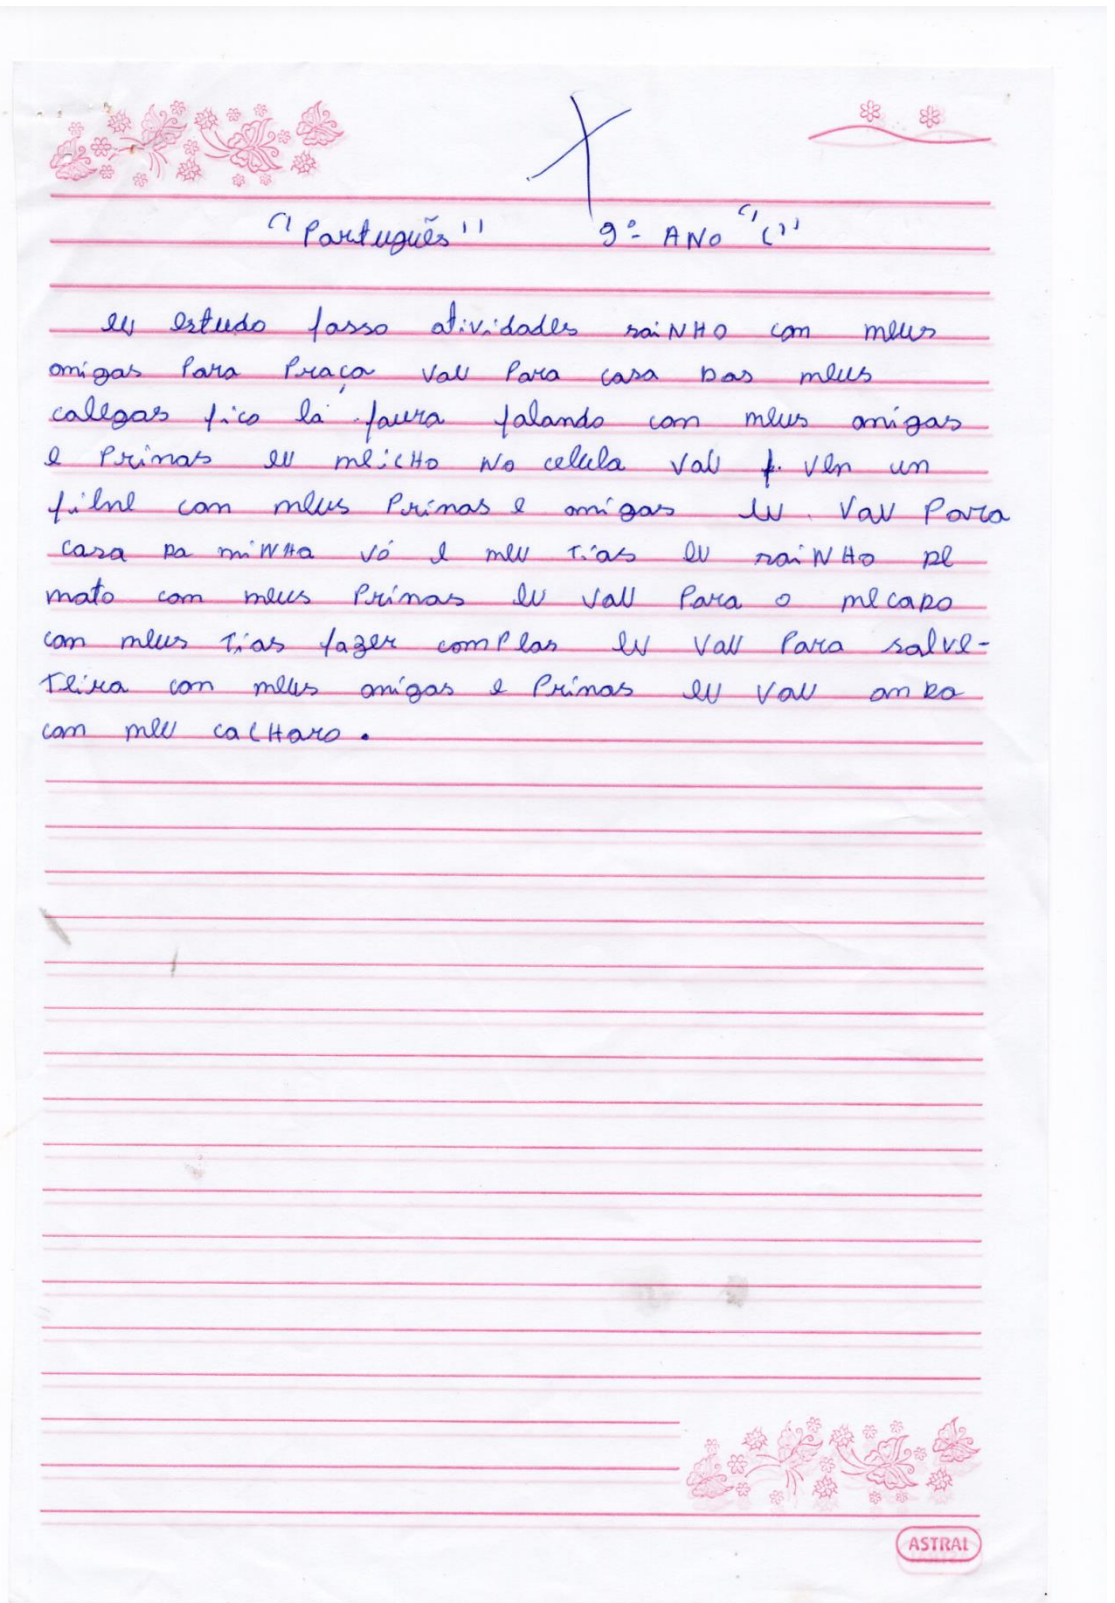 "Português" 9º ANO "C"
eu estudo fasso atividades sainho com meus
amigos Para Praça vou Para casa Das meus
colegas fico lá foura falando com meus amigos
e Primos eu meicho no celula vou f. ven un
filne com meus Primos e amigos eu vou Para
casa Da minha vó e meu Tios eu sainho De
moto com meus Primos eu vou Para o mecado
com meus Tios fazer complas eu vou Para salve-
Teira com meus amigos e Primos eu vou anDa
com meu cachoro.
ASTRAL